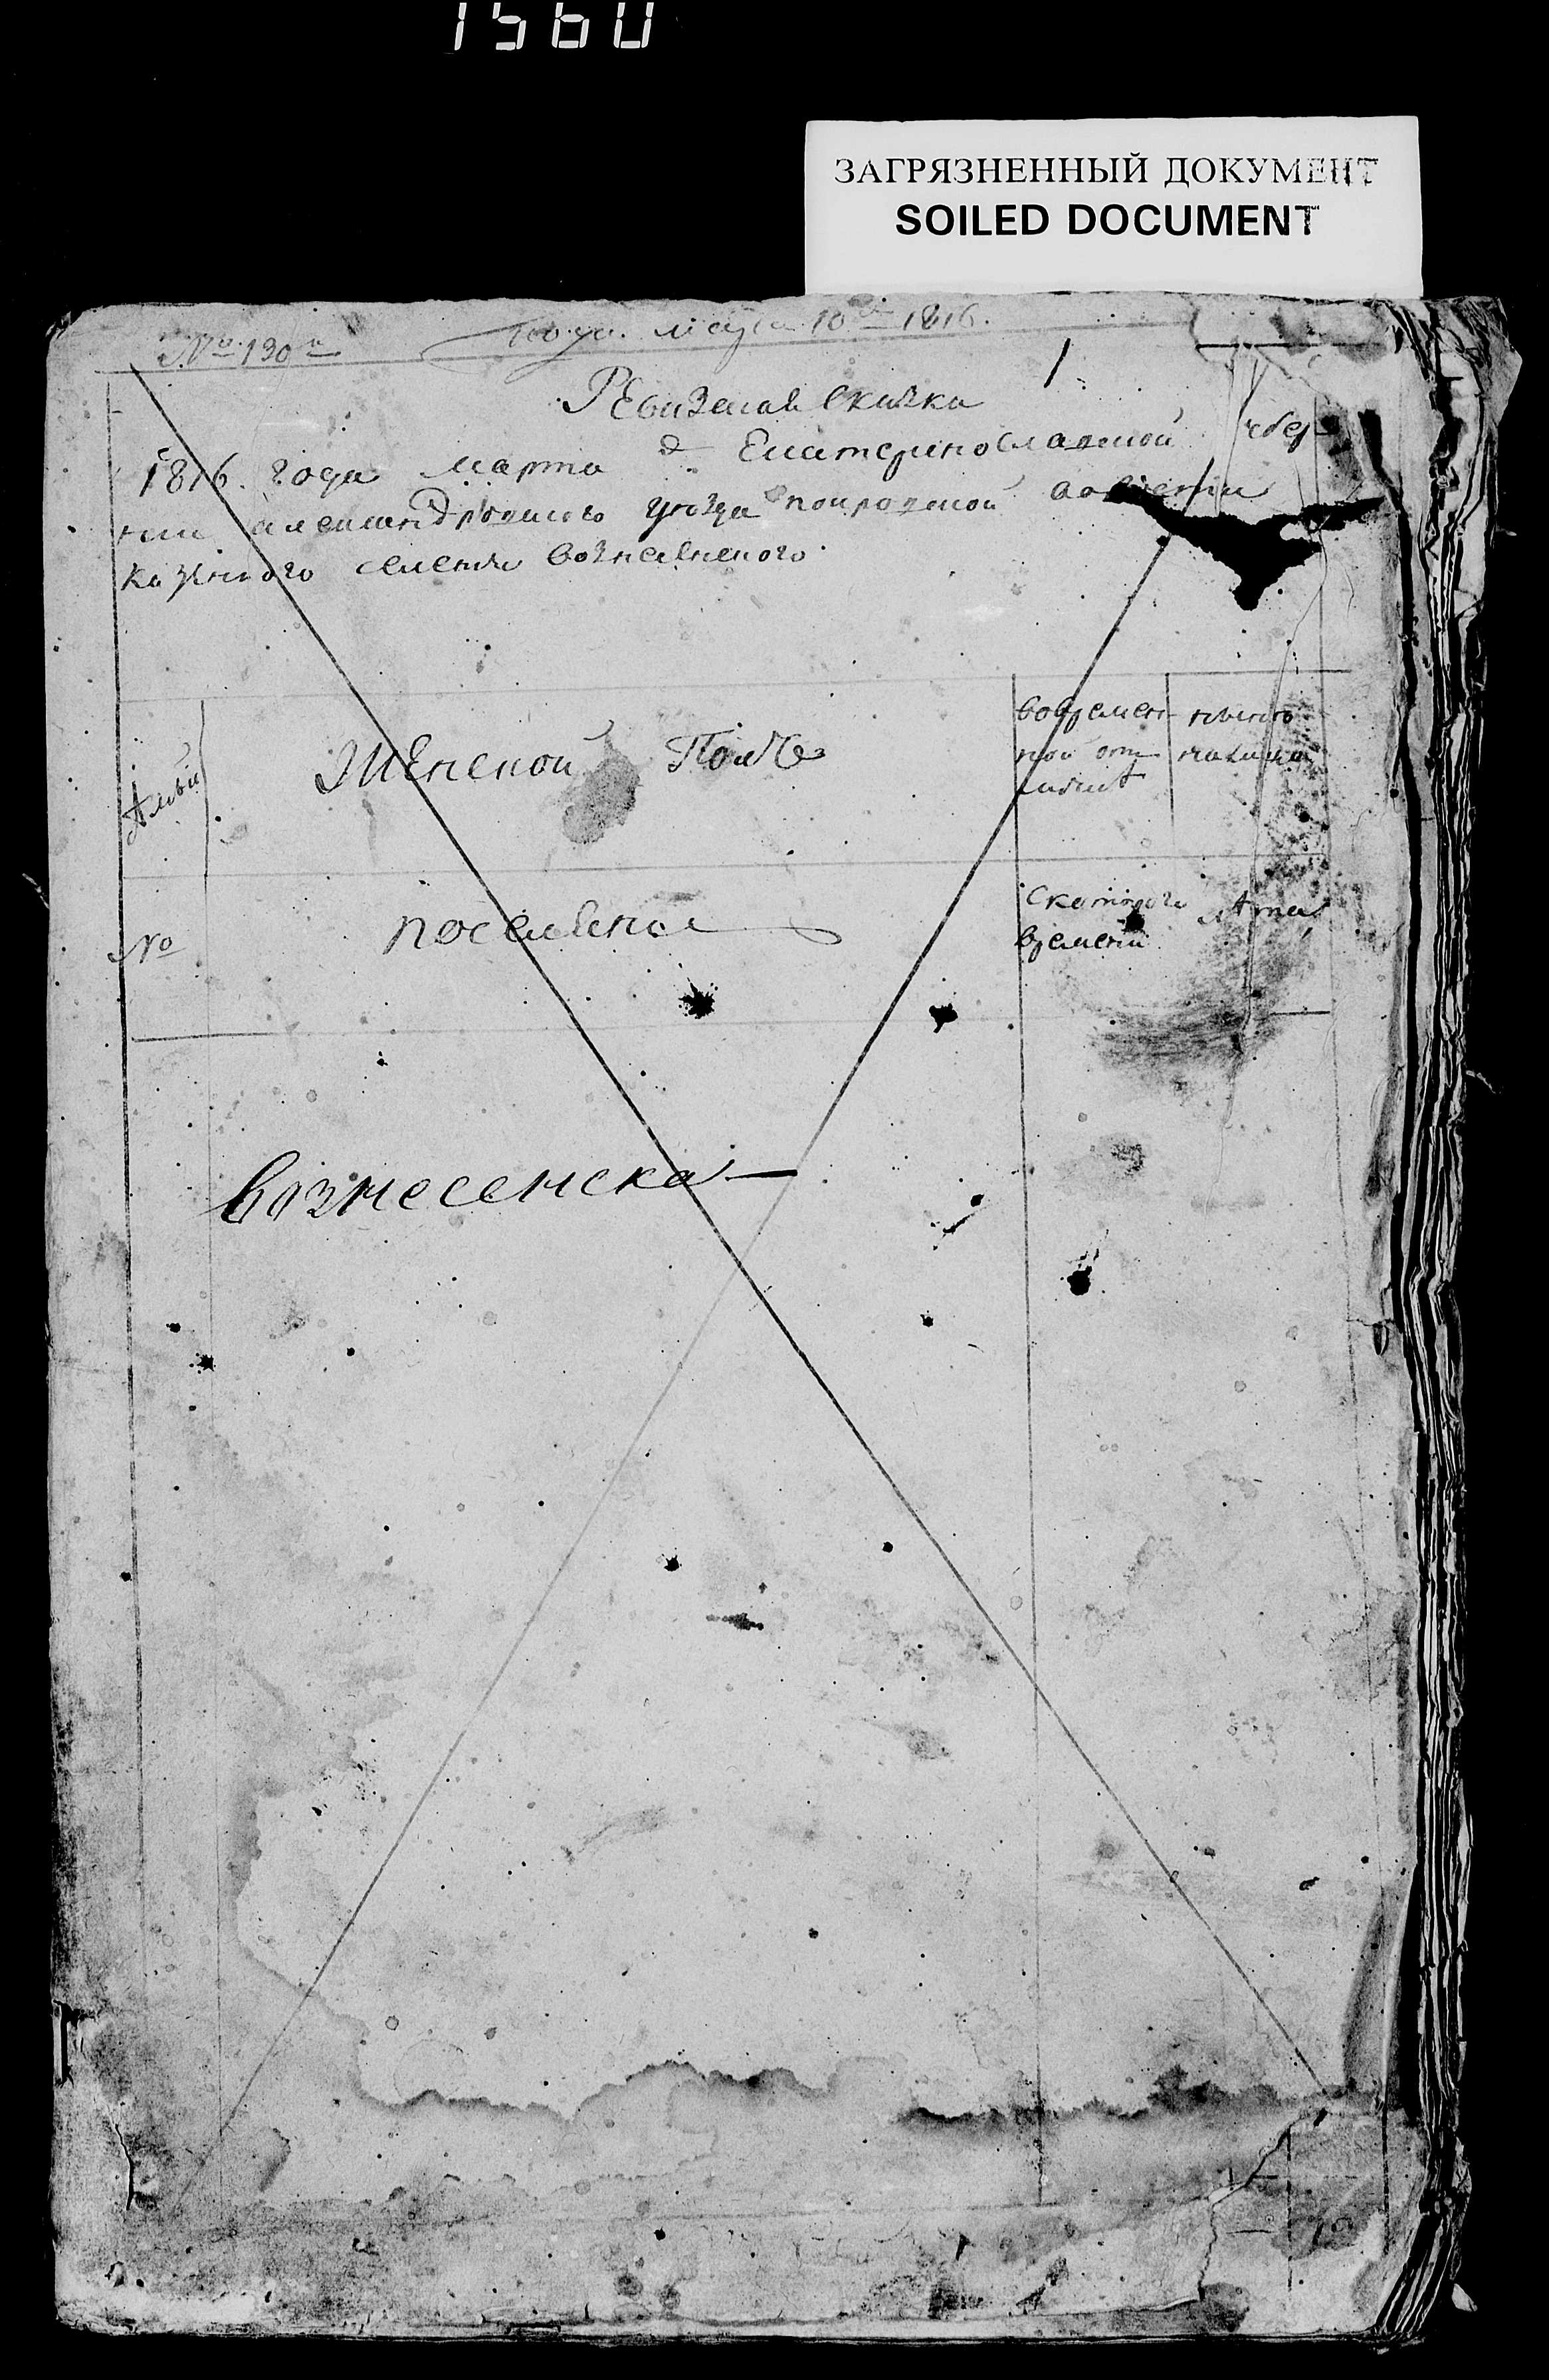 1560
ЗАГРЯЗНЕННЫЙ ДОКУМЕНТ
SOILED DOCUMENT
№ 130
10 1816.
1
Ревизская Скаска
1816. года марта Екатеринославской губер
нии александровского уезда покровской
казенного селения вознесенского
женской Полъ
вовремен
ной от
лучкѣ
ныне
налицо
№
поселена
Скоторого
времени
лѣта
вознесенска